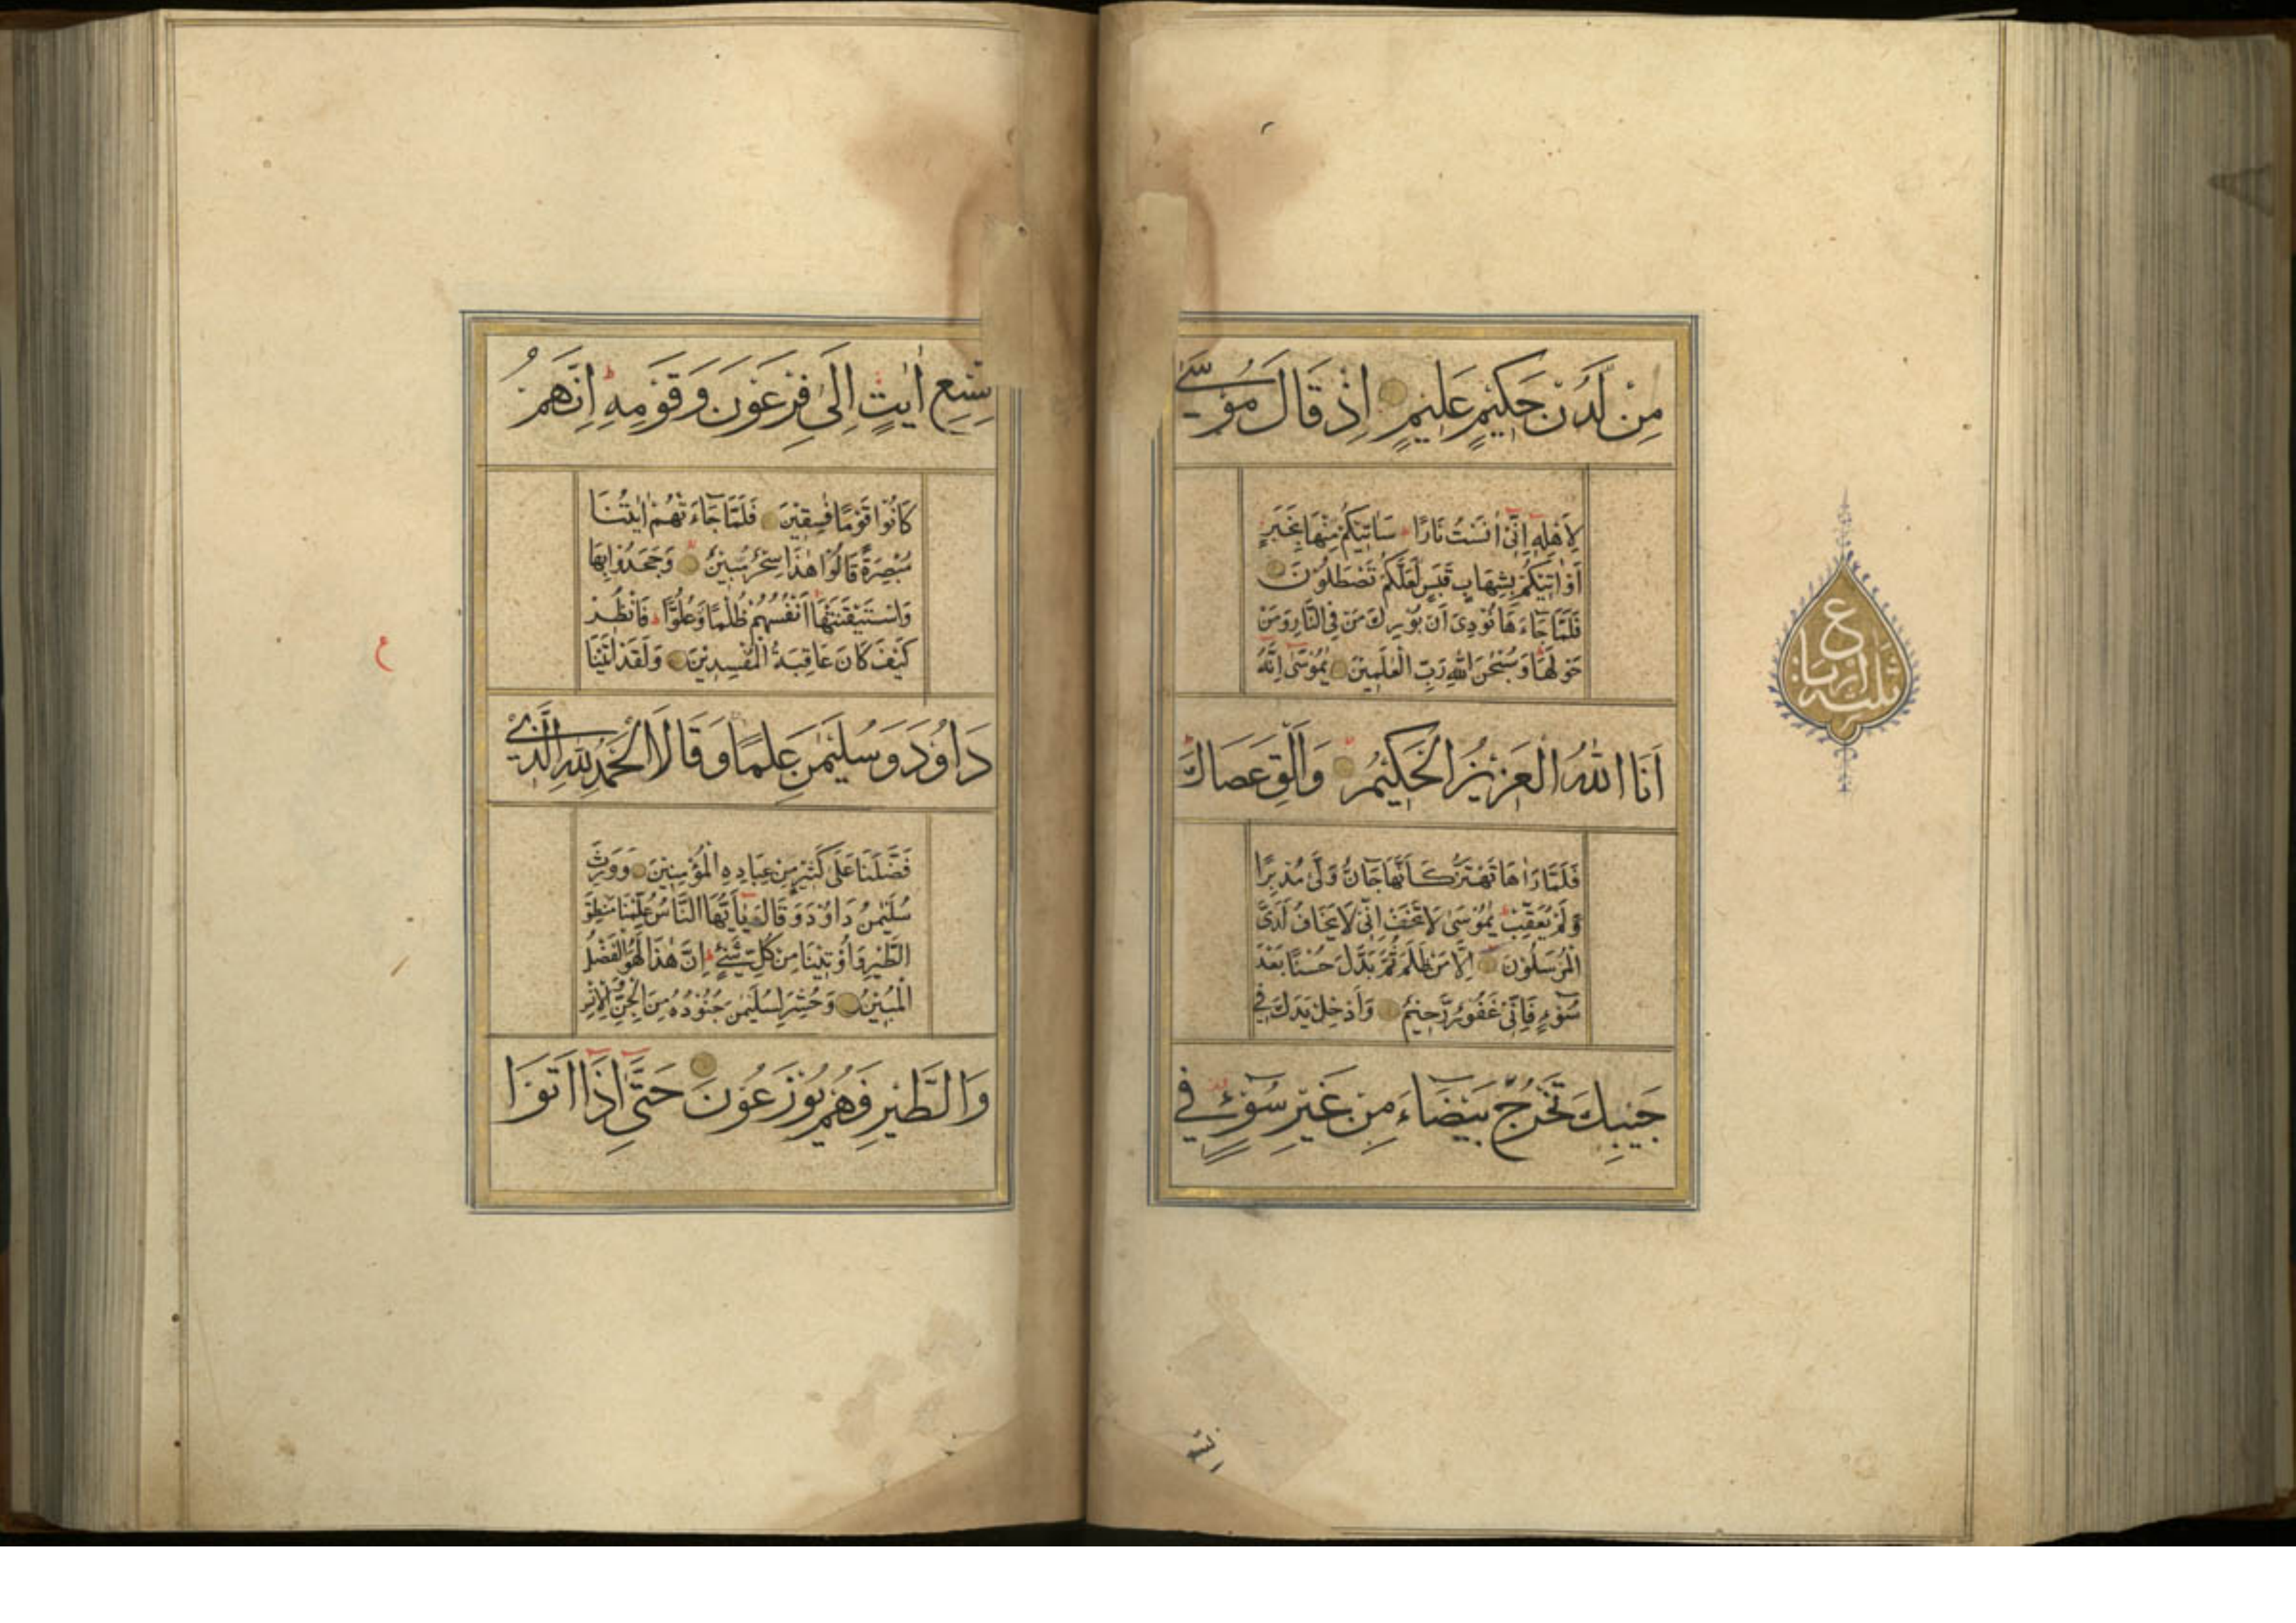 مِنْ لَّدُنْ حَكِيْمٍ عَلِيْمٍ اِذْ قَالَ مُوْسٰى
لِاَهْلِهٖٓ اِنِّىْٓ اٰنَسْتُ نَارًا سَاٰتِيْكُمْ مِّنْهَا بِخَبَرٍ
اَوْ اٰتِيْكُمْ بِشِهَابٍ قَبَسٍ لَّعَلَّكُمْ تَصْطَلُوْنَ
فَلَمَّا جَآءَهَا نُوْدِىَ اَنْ بُوْرِكَ مَنْ فِى النَّارِ وَمَنْ
حَوْلَهَا وَسُبْحٰنَ اللهِ رَبِّ الْعٰلَمِيْنَ يٰمُوْسٰٓى اِنَّهٗٓ
اَنَا اللهُ الْعَزِيْزُ الْحَكِيْمُ وَاَلْقِ عَصَاكَ
فَلَمَّا رَاٰهَا تَهْتَزُّ كَاَنَّهَا جَآنٌّ وَّلّٰى مُدْبِرًا
وَّلَمْ يُعَقِّبْ يٰمُوْسٰى لَا تَخَفْ اِنِّىْ لَا يَخَافُ لَدَىَّ
الْمُرْسَلُوْنَ اِلَّا مَنْ ظَلَمَ ثُمَّ بَدَّلَ حُسْنًا بَعْدَ
سُوْٓءٍ فَاِنِّىْ غَفُوْرٌ رَّحِيْمٌ وَاَدْخِلْ يَدَكَ فِىْ
جَيْبِكَ تَخْرُجْ بَيْضَآءَ مِنْ غَيْرِ سُوْٓءٍ فِىْ
ع
ثلثة ارباع
تِسْعِ اٰيٰتٍ اِلٰى فِرْعَوْنَ وَقَوْمِهٖ اِنَّهُمْ
كَانُوْا قَوْمًا فٰسِقِيْنَ فَلَمَّا جَآءَتْهُمْ اٰيٰتُنَا
مُبْصِرَةً قَالُوْا هٰذَا سِحْرٌ مُّبِيْنٌ وَجَحَدُوْا بِهَا
وَاسْتَيْقَنَتْهَآ اَنْفُسُهُمْ ظُلْمًا وَّعُلُوًّا فَانْظُرْ
كَيْفَ كَانَ عَاقِبَةُ الْمُفْسِدِيْنَ وَلَقَدْ اٰتَيْنَا
دَاوٗدَ وَسُلَيْمٰنَ عِلْمًا وَقَالَا الْحَمْدُ لِلّٰهِ الَّذِىْ
فَضَّلَنَا عَلٰى كَثِيْرٍ مِّنْ عِبَادِهِ الْمُؤْمِنِيْنَ وَوَرِثَ
سُلَيْمٰنُ دَاوٗدَ وَقَالَ يٰٓاَيُّهَا النَّاسُ عُلِّمْنَا مَنْطِقَ
الطَّيْرِ وَاُوْتِيْنَا مِنْ كُلِّ شَىْءٍ اِنَّ هٰذَا لَهُوَ الْفَضْلُ
الْمُبِيْنُ وَحُشِرَ لِسُلَيْمٰنَ جُنُوْدُهٗ مِنَ الْجِنِّ وَالْاِنْسِ
وَالطَّيْرِ فَهُمْ يُوْزَعُوْنَ حَتّٰٓى اِذَآ اَتَوْا
ع